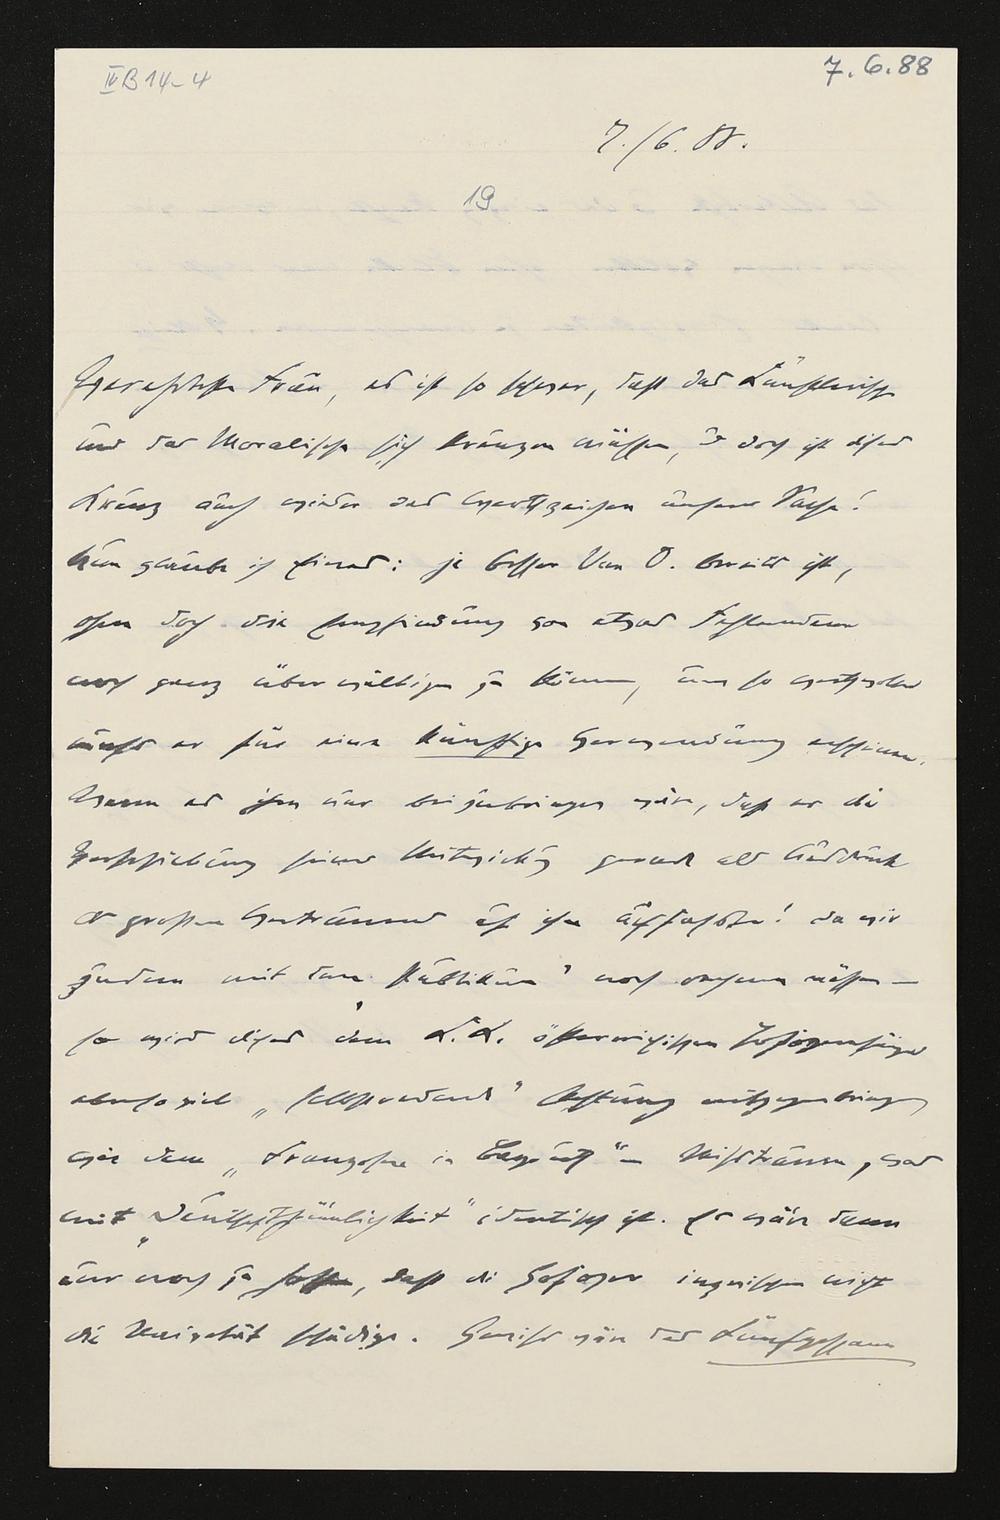 IV B 14-4
7.6.88
7./6. 88.
19
Frau, es ist so schwer, daß das Künstlerische
und das Moralische sich kreuzen müssen, u doch ist dises
Kreuz auch wieder das unserer Sache!
Nun glaube ich Eines: je besser Van D. bereits ist,
ohne doch die Empfindung von etwas Fehlendem
noch ganz überwältigen zu können, um so
müßte er für eine künftige Verwendung erscheinen.
Wenn es ihm nur beizubringen wäre, daß er die
Verschiebung seiner Mitwirkg gerade als Ausdruck
des großen Vertrauens auf ihn auffaßte! da wir
zudem mit dem „Publikum" noch rechnen müssen —
so wird dises dem K. K. österreichischen
ebenso viel „ " Achtung entgegenbringen
wie dem „Franzosen in Bayreuth" — Mißtrauen, was
mit „Deutschthümlichkeit" identisch ist. Es wäre denn
nur noch zu hoffen, daß die inzwischen nicht
die Naivetät schädige. Gewiß wäre das